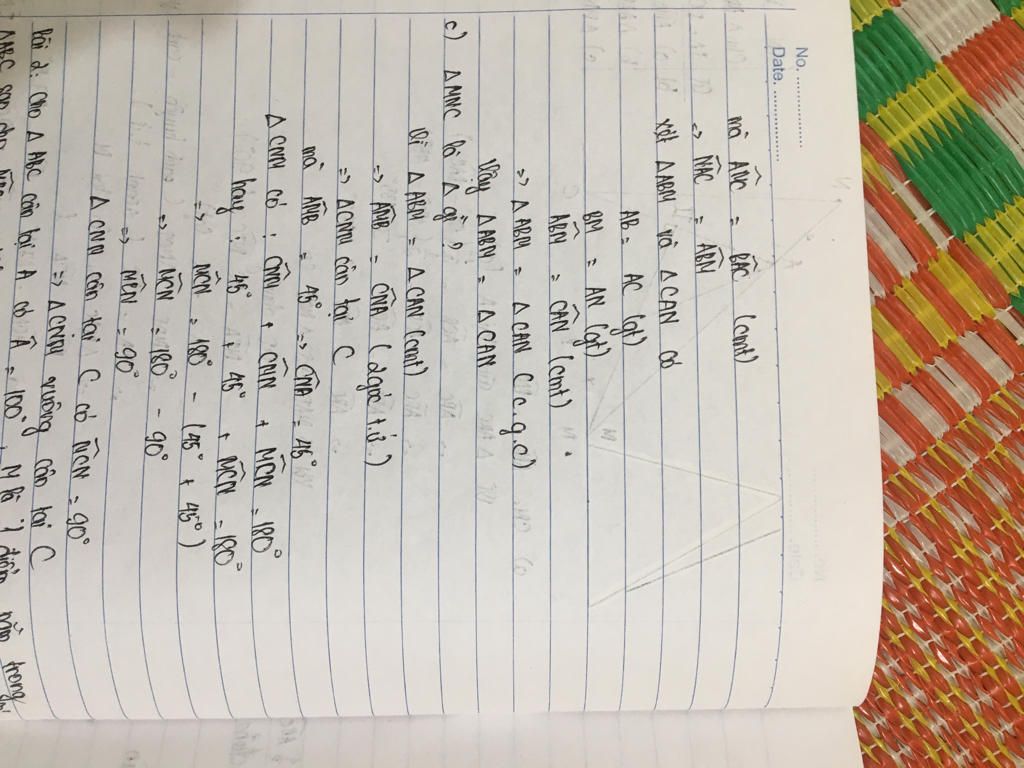 No. ................
Date. ................
mà ÂNC = B̂AC (cmt)
=> N̂AC = ÂBM
xét Δ ABM và Δ CAN có
AB = AC (gt)
BM = AN (gt)
ÂBM = ĈAN (cmt)
=> Δ ABM = Δ CAN (c.g.c)
Vậy Δ ABM = Δ CAN
c) Δ MNC là Δ gì ?
Vì Δ ABM = Δ CAN (cmt)
=> ÂMB = ĈNA ( 2 góc t.ứ.)
=> Δ CNM cân tại C
mà ÂMB = 45° => ĈNA = 45°
Δ CNM có : ĈNM + ĈMN + M̂CN = 180°
hay : 45° + 45° + M̂CN = 180°
=> M̂CN = 180° - (45° + 45°)
=> M̂CN = 180° - 90°
=> M̂CN = 90°
Δ CNM cân tại C có N̂CM = 90°
=> Δ CNM vuông cân tại C
Bài 2: Cho Δ ABC cân tại A có Â = 100°. M là 1 điểm nằm trong
Δ ABC sao cho